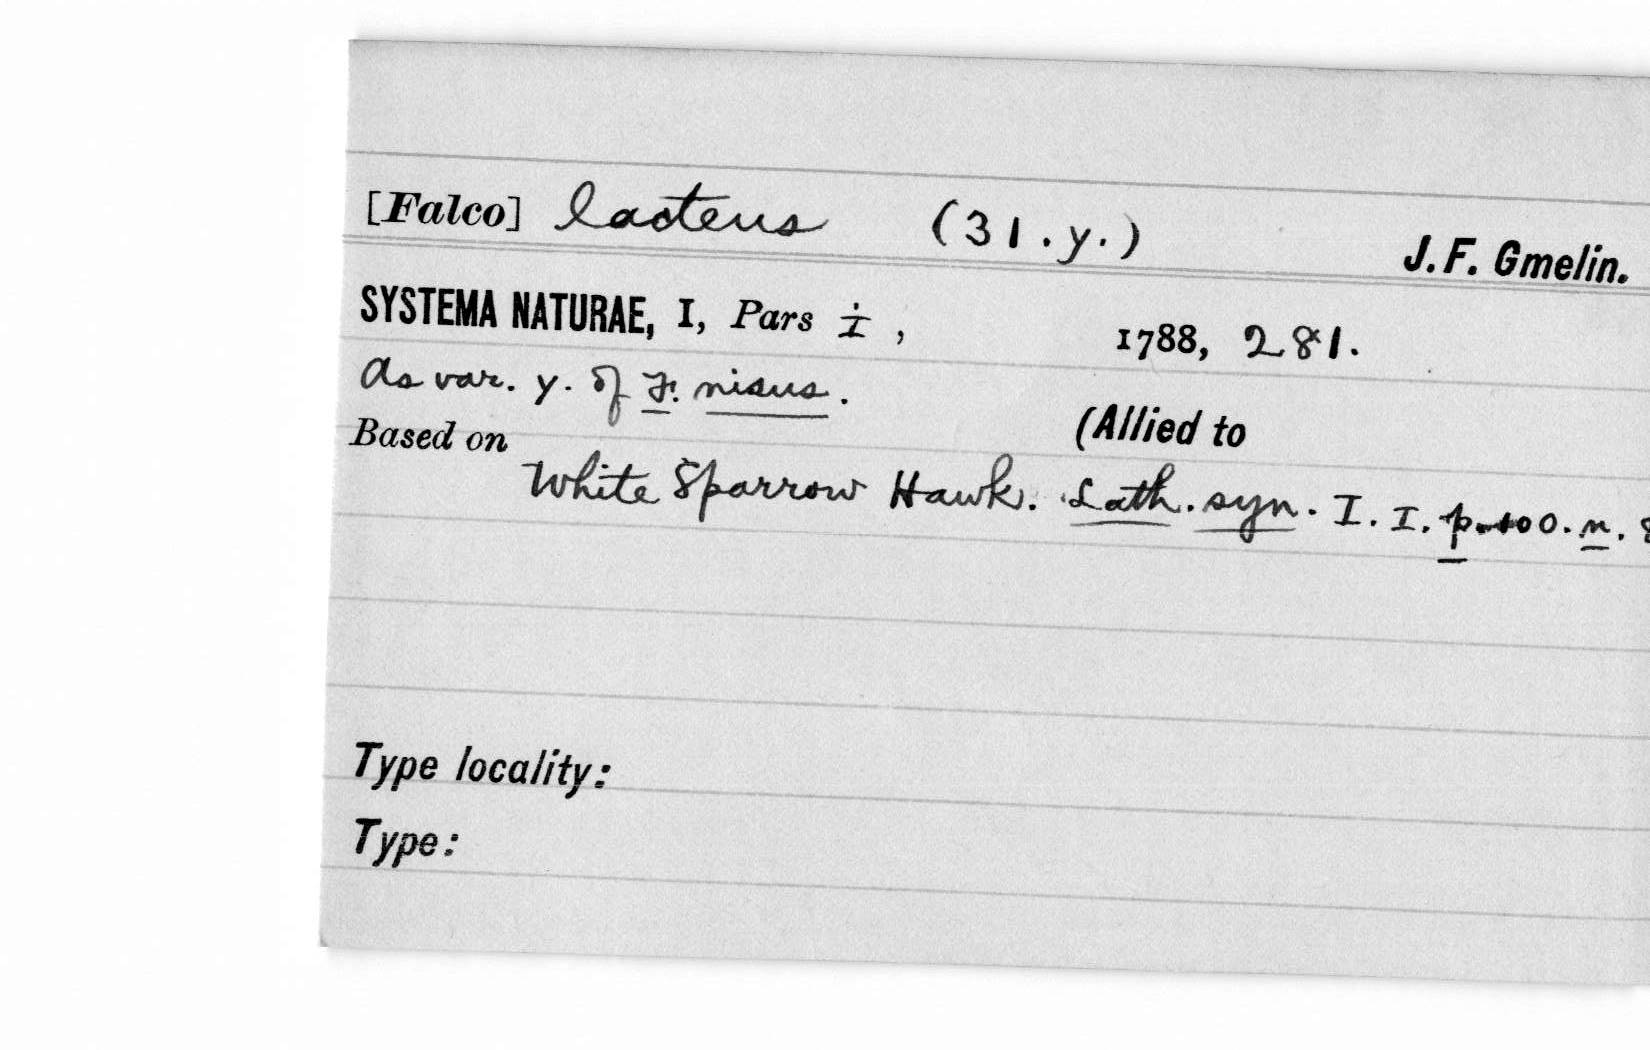 [Falco] lacteus (31.y.) J.F. Gmelin.
SYSTEMA NATURAE, I, Pars i, 1788, 281.
As var. y. of F. nisus.
Based on (Allied to
White Sparrow Hawk. Lath. syn. I. I. p. 100. n.
Type locality:
Type: